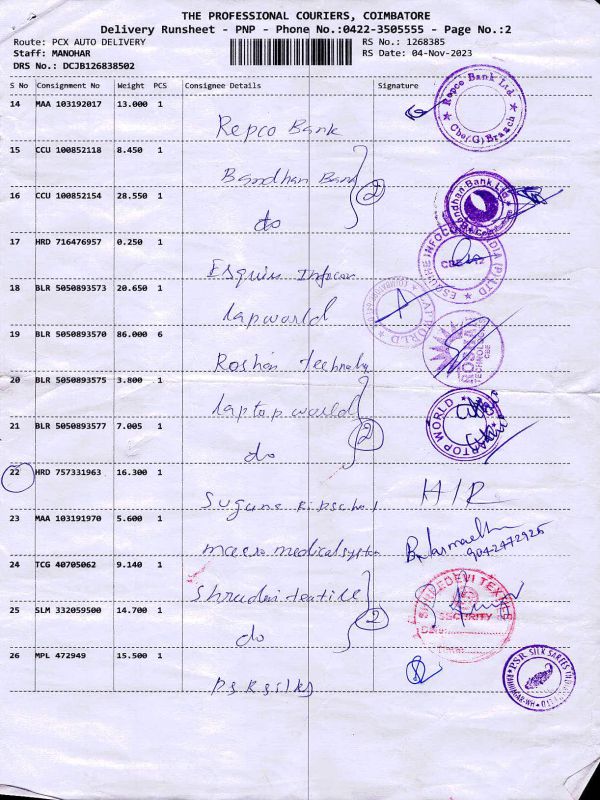 THE PROFESSIONAL COURIERS, COIMBATORE
Delivery Runsheet - PNP - Phone No.:0422-3505555 - Page No.:2
Route: PCX AUTO DELIVERY RS No.: 1268385
Staff: MANOHAR RS Date: 04-Nov-2023
DRS No.: DCJB126838502
S No Consignment No Weight PCS Consignee Details Signature
14 MAA 103192017 13.000 1
Repco Bank
Repco Bank Ltd. Cbe(G) Branch
15 CCU 100852118 8.450 1
Bandhan Bank
2
16 CCU 100852154 28.550 1
do
Bandhan Bank Ltd
17 HRD 716476957 0.250 1
Esquire Infocom
18 BLR 5050893573 20.650 1
lapworld
19 BLR 5050893570 86.000 6
Roshan Technology
20 BLR 5050893575 3.800 1
laptop world
LAPTOP WORLD
2
21 BLR 5050893577 7.005 1
do
22 HRD 757331963 16.300 1
Suguna
H/R
23 MAA 103191970 5.600 1
medical system
9042472925
24 TCG 40705062 9.140 1
Shreedevi textile
SHREEDEVI TEXTILE
SECURITY
2
25 SLM 332059500 14.700 1
do
26 MPL 472949 15.500 1
P S R Silks
PSR SILK SAREES